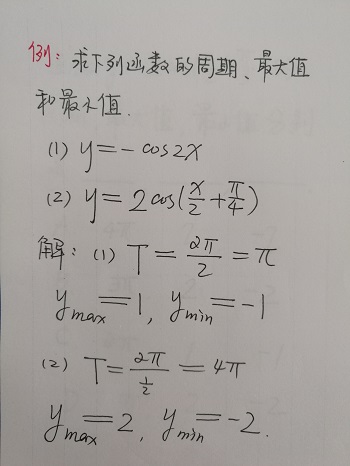 例：求下列函数的周期、最大值
和最小值.
(1) y=-cos2x
(2) y=2cos(x/2+π/4)
解：(1) T=2π/2=π
ymax=1, ymin=-1
(2) T=2π/(1/2)=4π
ymax=2, ymin=-2.